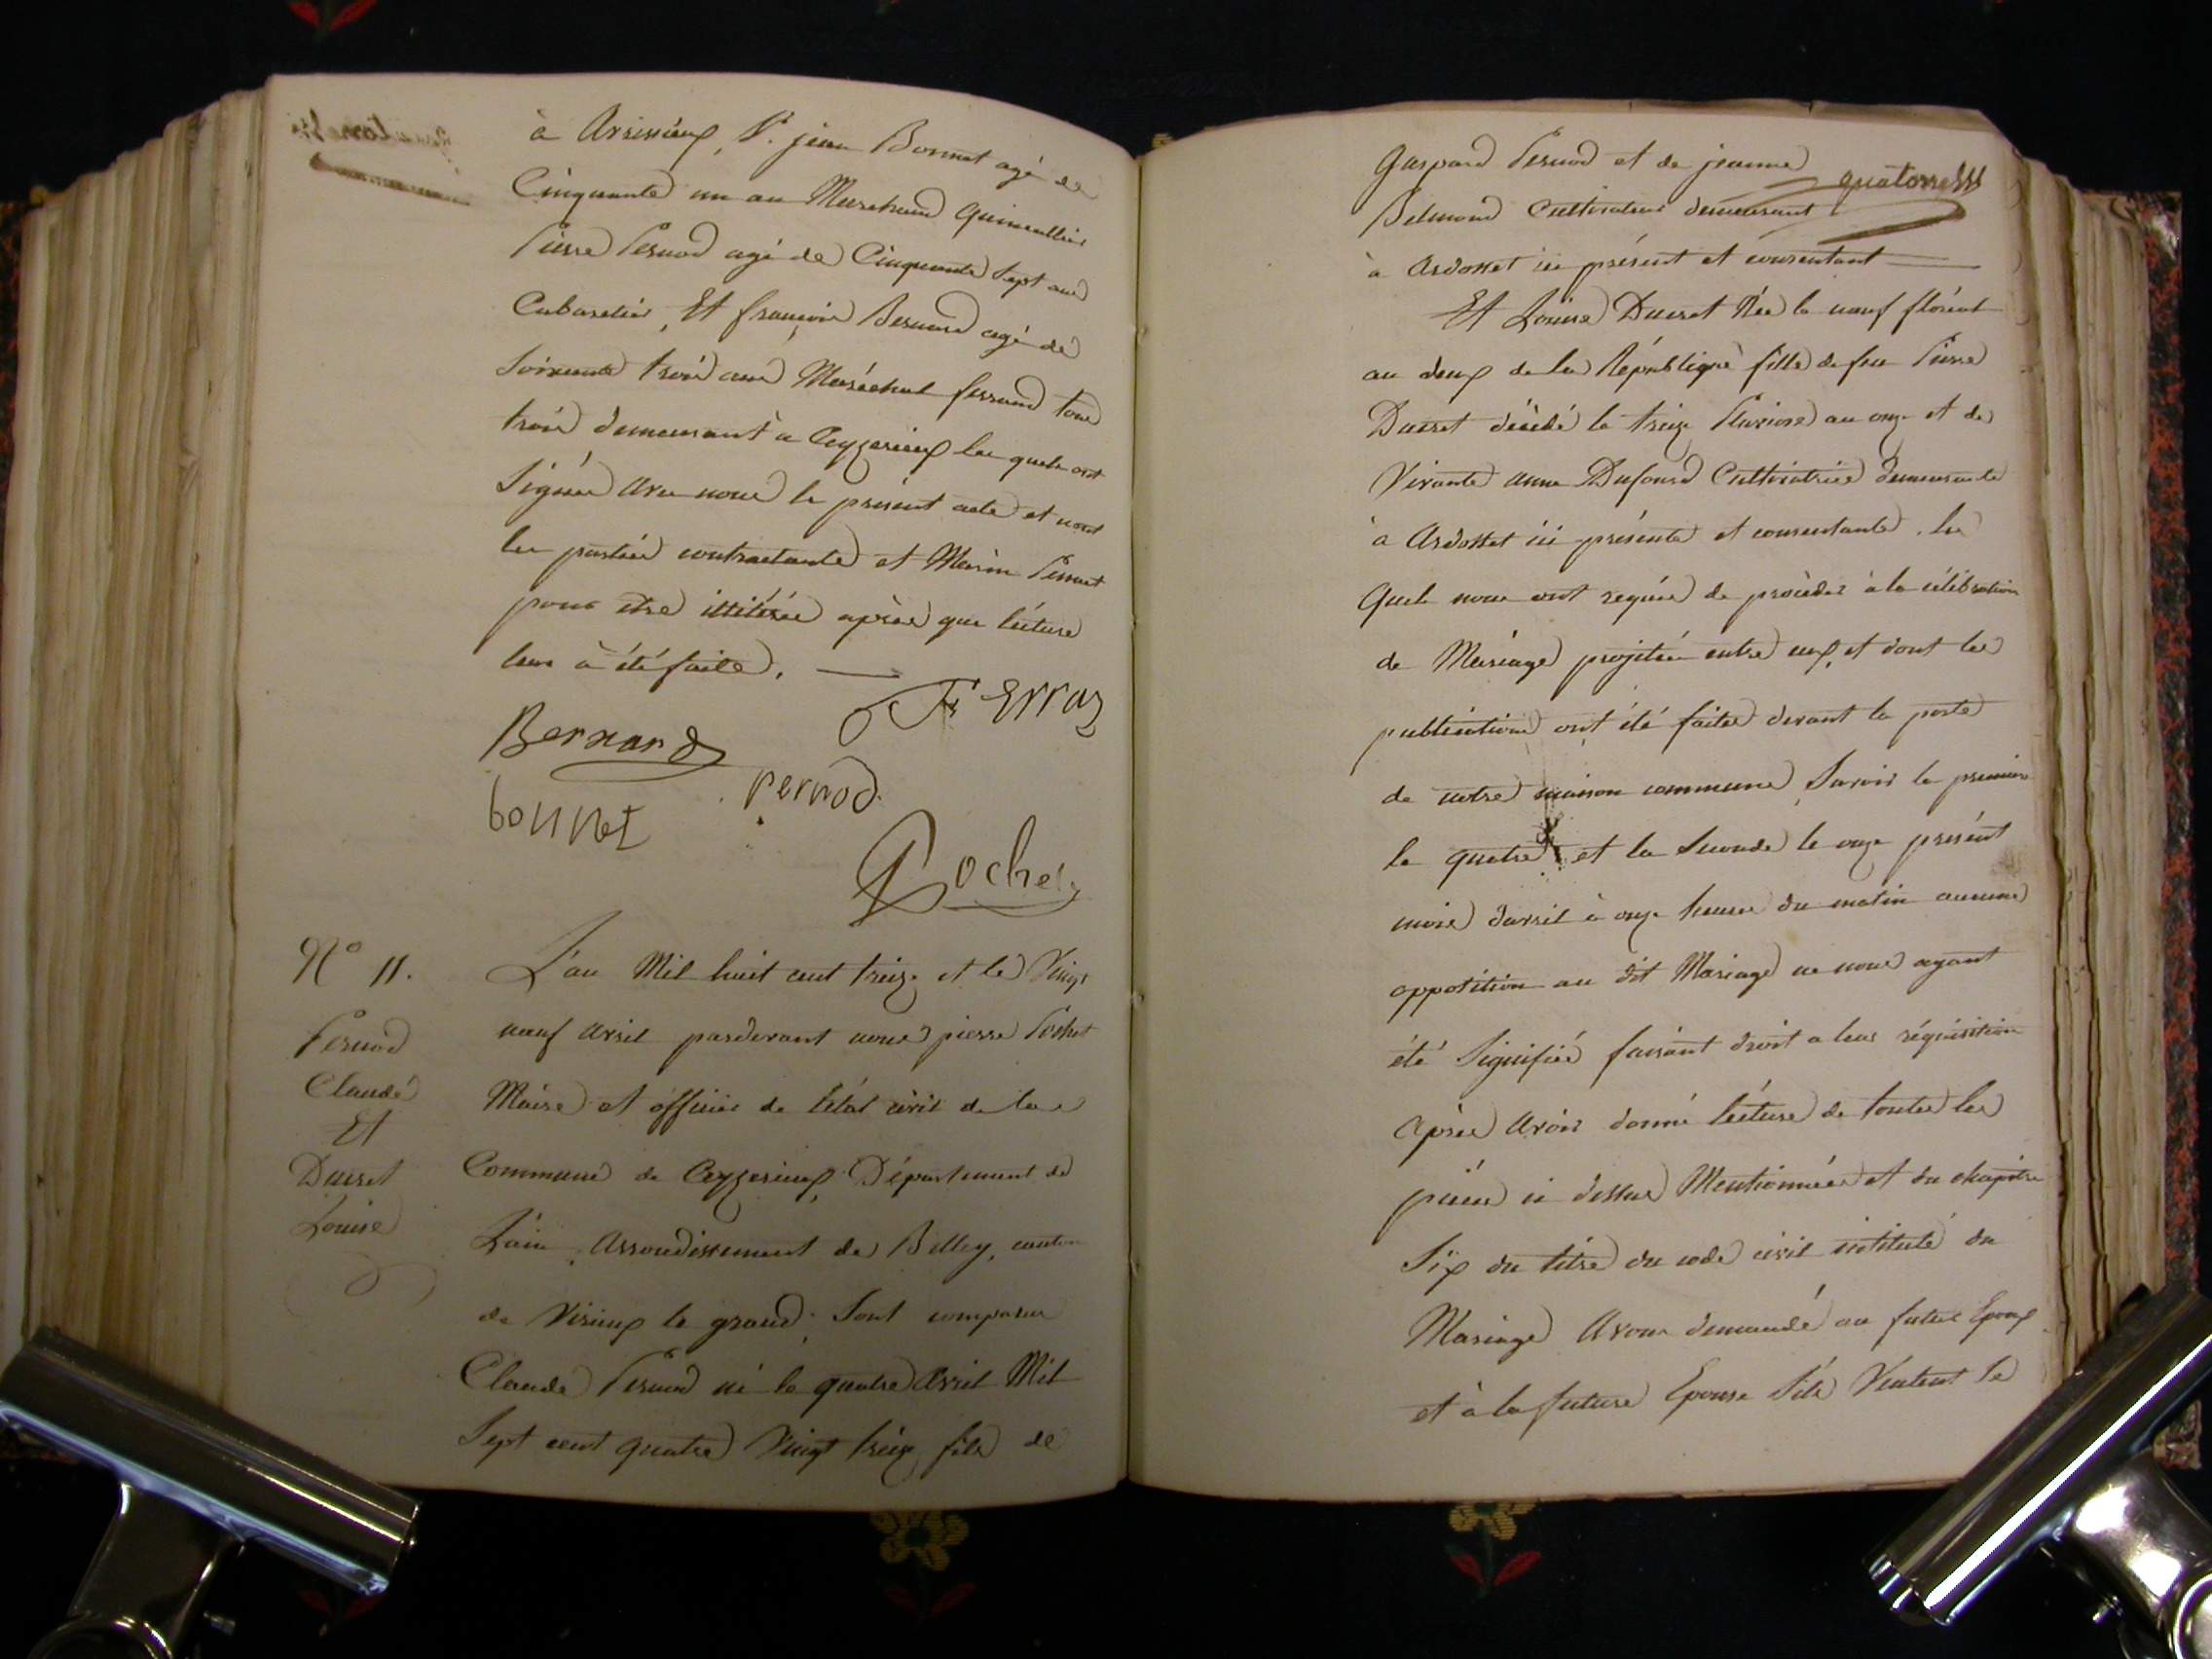 à Arsissieux, Sr. jean Bonnet agé de
Cinquante un an Marchand quincallier
Pierre Pernod agé de Cinquante Sept ans
Cabaretier, Et françois Bernard agé de
Soixante trois ans Maréchal ferrand tous
trois demeurant à Ceyzerieux les quels ont
Signés avec nous le présent acte et nont
les parties contractante et Perret
pour etre illitérés après que lécture
leur à été faite.
Ferraz
Bernard
pernod
bonnet
Pochet
quatorze
N° 11.
Pernod
Claude
Et
Ducret
Louise
L'an Mil huit cent treize et le Vingt
neuf avril pardevant nous pierre Pochet
Maire et officier de l'état civil de la
Commune de Ceyzerieux Département de
L'ain, Arrondissement de Belley, canton
de Virieux le grand, Sont comparus
Claude Pernod né le quatre avril Mil
Sept cent quatre Vingt treize fils de
quatorze
Gaspard Pernod et de jeanne
Belmond Cultivateur demeurant
à Ardosset ici présent et consentant
Et Louise Ducret Née le neuf floréal
an deux de la République fille de feu Pierre
Ducret décédé le treize Pluviose an onze et de
Vivante anne Dufourd Cultivatrice demeurante
à Ardosset ici présente et consentante. les
quels nous ont requis de procéder à la célébration
de Mariage projetée entre eux, et dont les
publications ont été faites devant la porte
de notre maison commune, Savoir la premiere
le quatre et la Seconde le onze présent
mois davril à onze heures du matin aucune
opposition au dit Mariage ne nous ayant
été Signifiée faisant droit a leur réquisition
après Avoir donné lécture de toutes les
pièces ci dessus Mentionnées et du chapitre
Six du titre du code civil intitulé du
Mariage Avons demandé au futur Epoux
et à la future Epouse S'ils Veulent Se